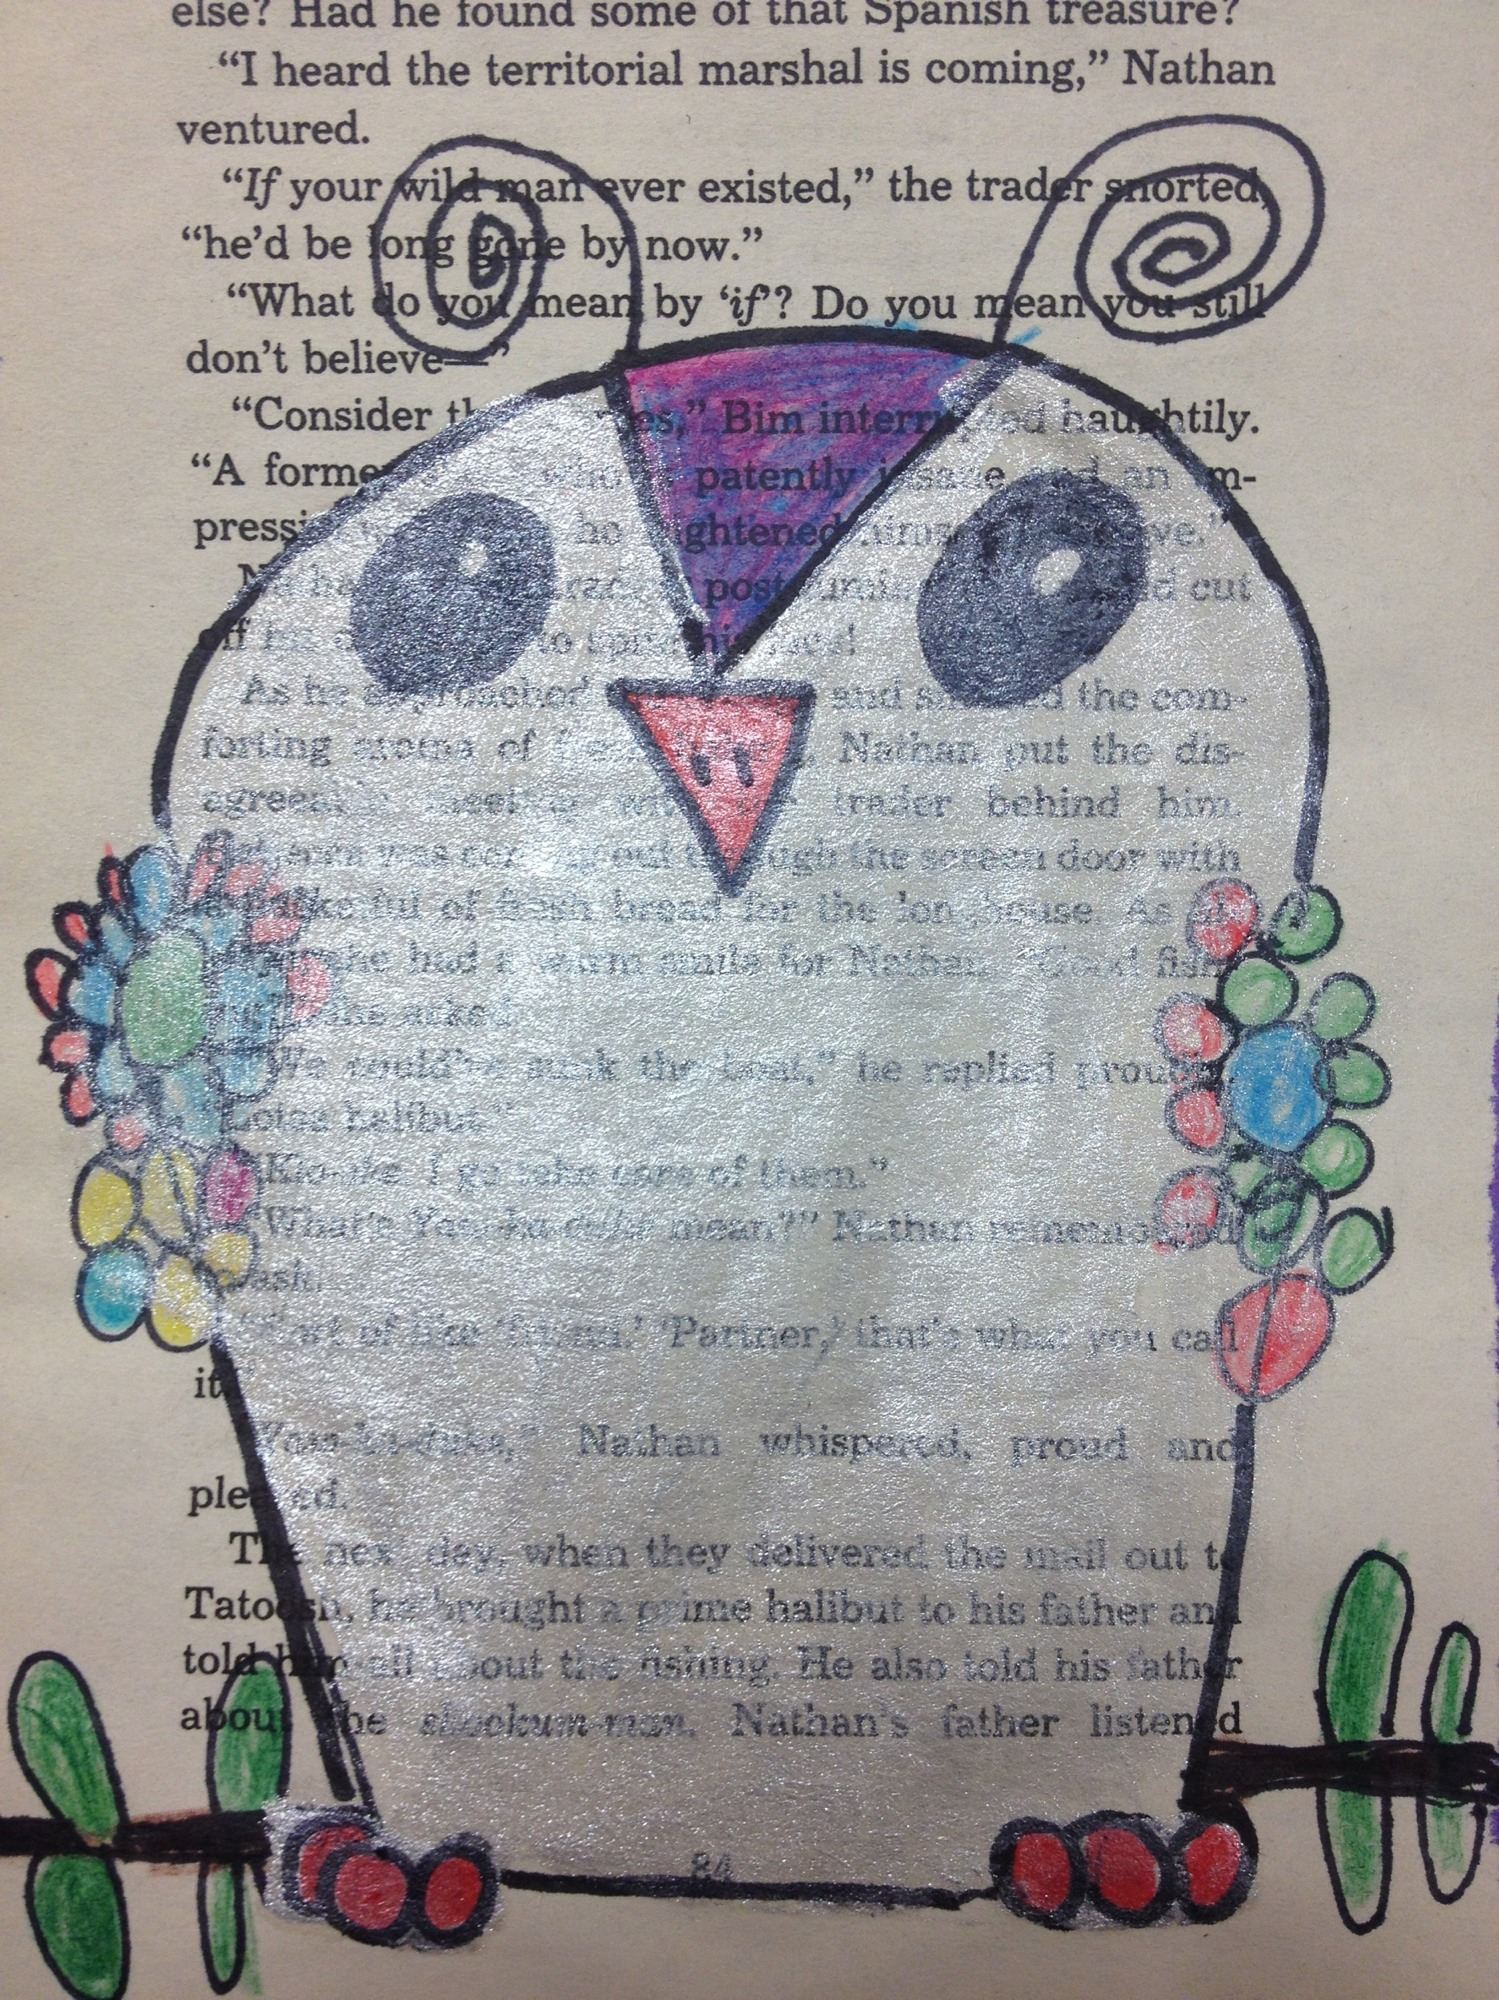 else? Had he found some of that Spanish treasure?
“I heard the territorial marshal is coming,” Nathan
ventured.
“If your wild man ever existed,” the trader snorted,
“he’d be long gone by now.”
“What do you mean by ‘if’? Do you mean you still
don’t believe—”
“Consider Bim interrupted haughtily.
“A patently insane and an im-
he frightened
post cut
off his to his
As he approached and the com-
forting aroma of Nathan put the dis-
agreeable meeting with the trader behind him.
was coming out through the screen door with
of fresh bread for the longhouse. As
she had a warm smile for Nathan. “Good
she asked.
“We could’ve sunk the boat,” he replied proudly.
“Lotsa halibut.”
I go take care of them.”
“What’s mean?” Nathan remembered
ask.
“Sort of like ‘Partner,’ that’s what you call
it.
Nathan whispered, proud and
pleased.
The next day, when they delivered the mail out to
Tatoosh, he brought a prime halibut to his father and
told him all about the fishing. He also told his father
about the skookum-man. Nathan’s father listened
84